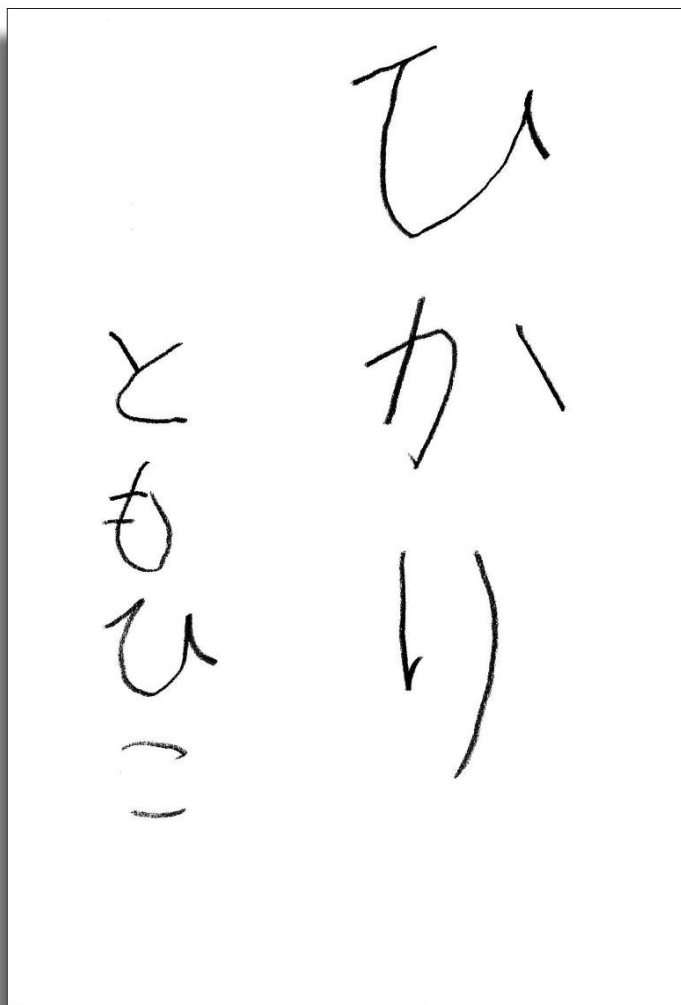 ひかり
ともひこ